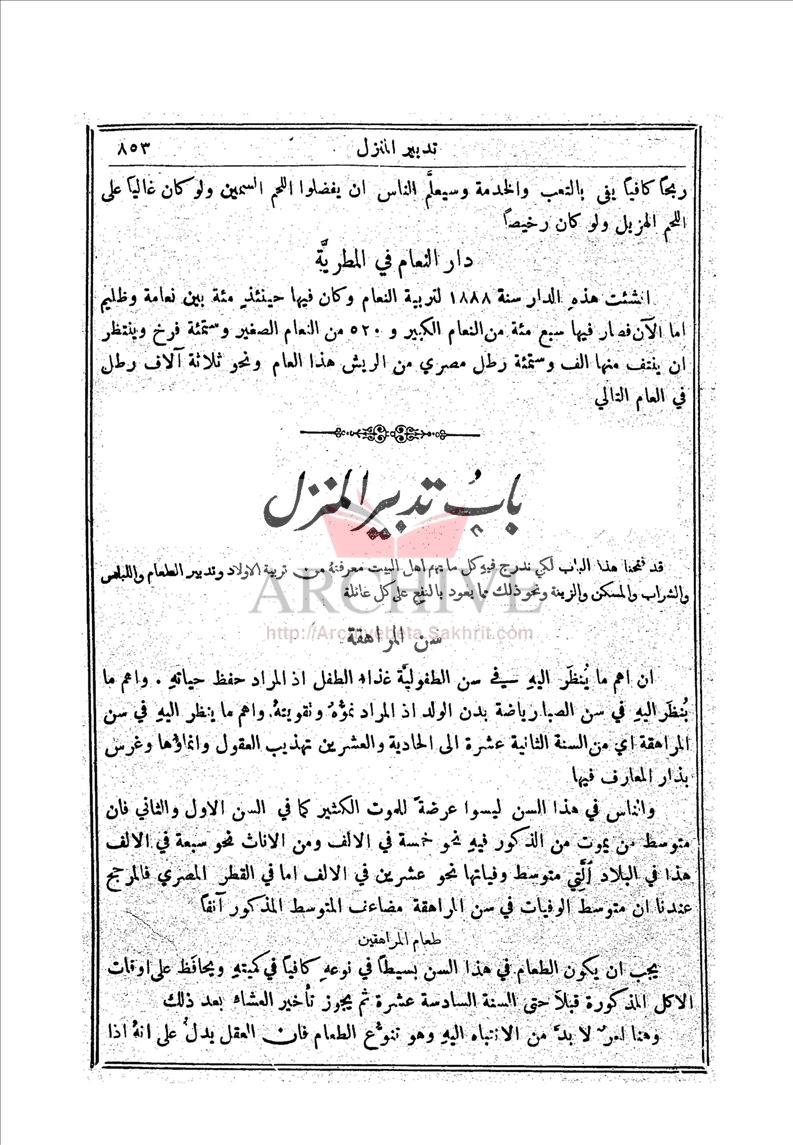 تدبير المنزل ٨٥٣
ربحًا كافيًا يفي بالتعب والخدمة وسيعلَّم الناس ان يفضلوا اللحم السمين ولو كان غاليًا على
اللحم الهزيل ولو كان رخيصًا
دار النعام في المطريَّة
انشئت هذهِ الدار سنة ١٨٨٨ لتربية النعام وكان فيها حينئذٍ مئة بين نعامة وظليم
اما الآن فصار فيها سبع مئة من النعام الكبير و ٥٢٠ من النعام الصغير وستمئة فرخ وينتظر
ان ينتف منها الف وستمئة رطل مصري من الريش هذا العام ونحو ثلاثة آلاف رطل
في العام التالي
باب تدبير المنزل
قد فتحنا هذا الباب لكي ندرج فيهِ كل ما يهم اهل البيت معرفتهُ من تربية الاولاد وتدبير الطعام واللباس
والشراب والمسكن والزينة ونحو ذلك مما يعود بالنفع على كل عائلة
ARCHIVE
http://Archivebeta.Sakhrit.com
سن المراهقة
ان اهم ما يُنظَر اليهِ في سن الطفوليَّة غذاء الطفل اذ المراد حفظ حياتهِ . واهم ما
يُنظَر اليهِ في سن الصبا رياضة بدن الولد اذ المراد نموُّهُ ونقويتهُ. واهم ما ينظر اليهِ في سن
المراهقة اي من السنة الثانية عشرة الى الحادية والعشرين تهذيب العقول وانماؤها وغرس
بذار المعارف فيها
والناس في هذا السن ليسوا عرضةً للموت الكثير كما في السن الاول والثاني فان
متوسط من يموت من الذكور فيهِ نحو خمسة في الالف ومن الاناث نحو سبعة في الالف
هذا في البلاد الَّتي متوسط وفياتها نحو عشرين في الالف اما في القطر المصري فالمرجح
عندنا ان متوسط الوفيات في سن المراهقة مضاعف المتوسط المذكور آنفًا
طعام المراهقين
يجب ان يكون الطعام في هذا السن بسيطًا في نوعهِ كافيًا في كميتهِ ويحافَظ على اوقات
الاكل المذكورة قبلًا حتى السنة السادسة عشرة ثم يجوز تأخير العشاء بعد ذلك
وهنا امرٌ لا بدَّ من الانتباه اليهِ وهو تنوُّع الطعام فان العقل يدلُّ على انهُ اذا